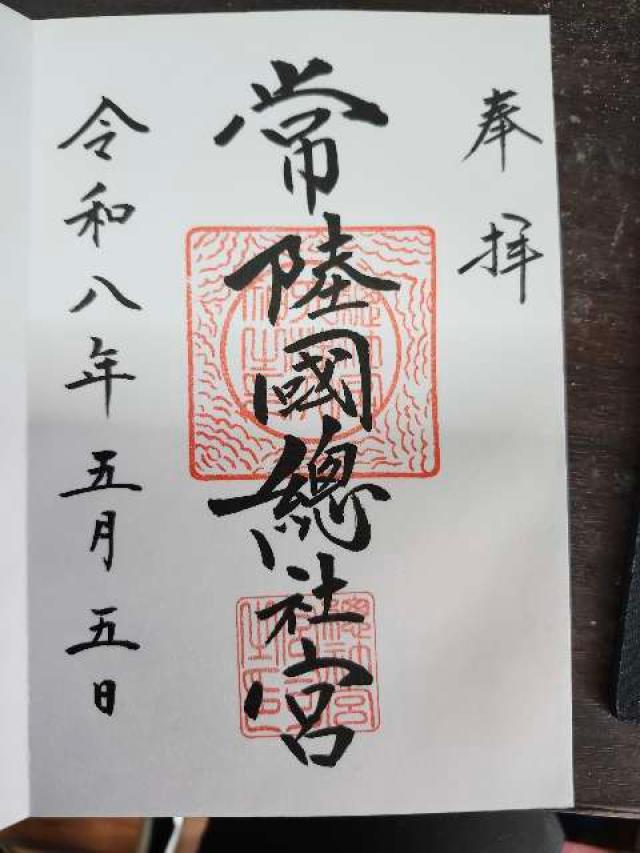 奉拝
常陸國總社宮
令和八年五月五日